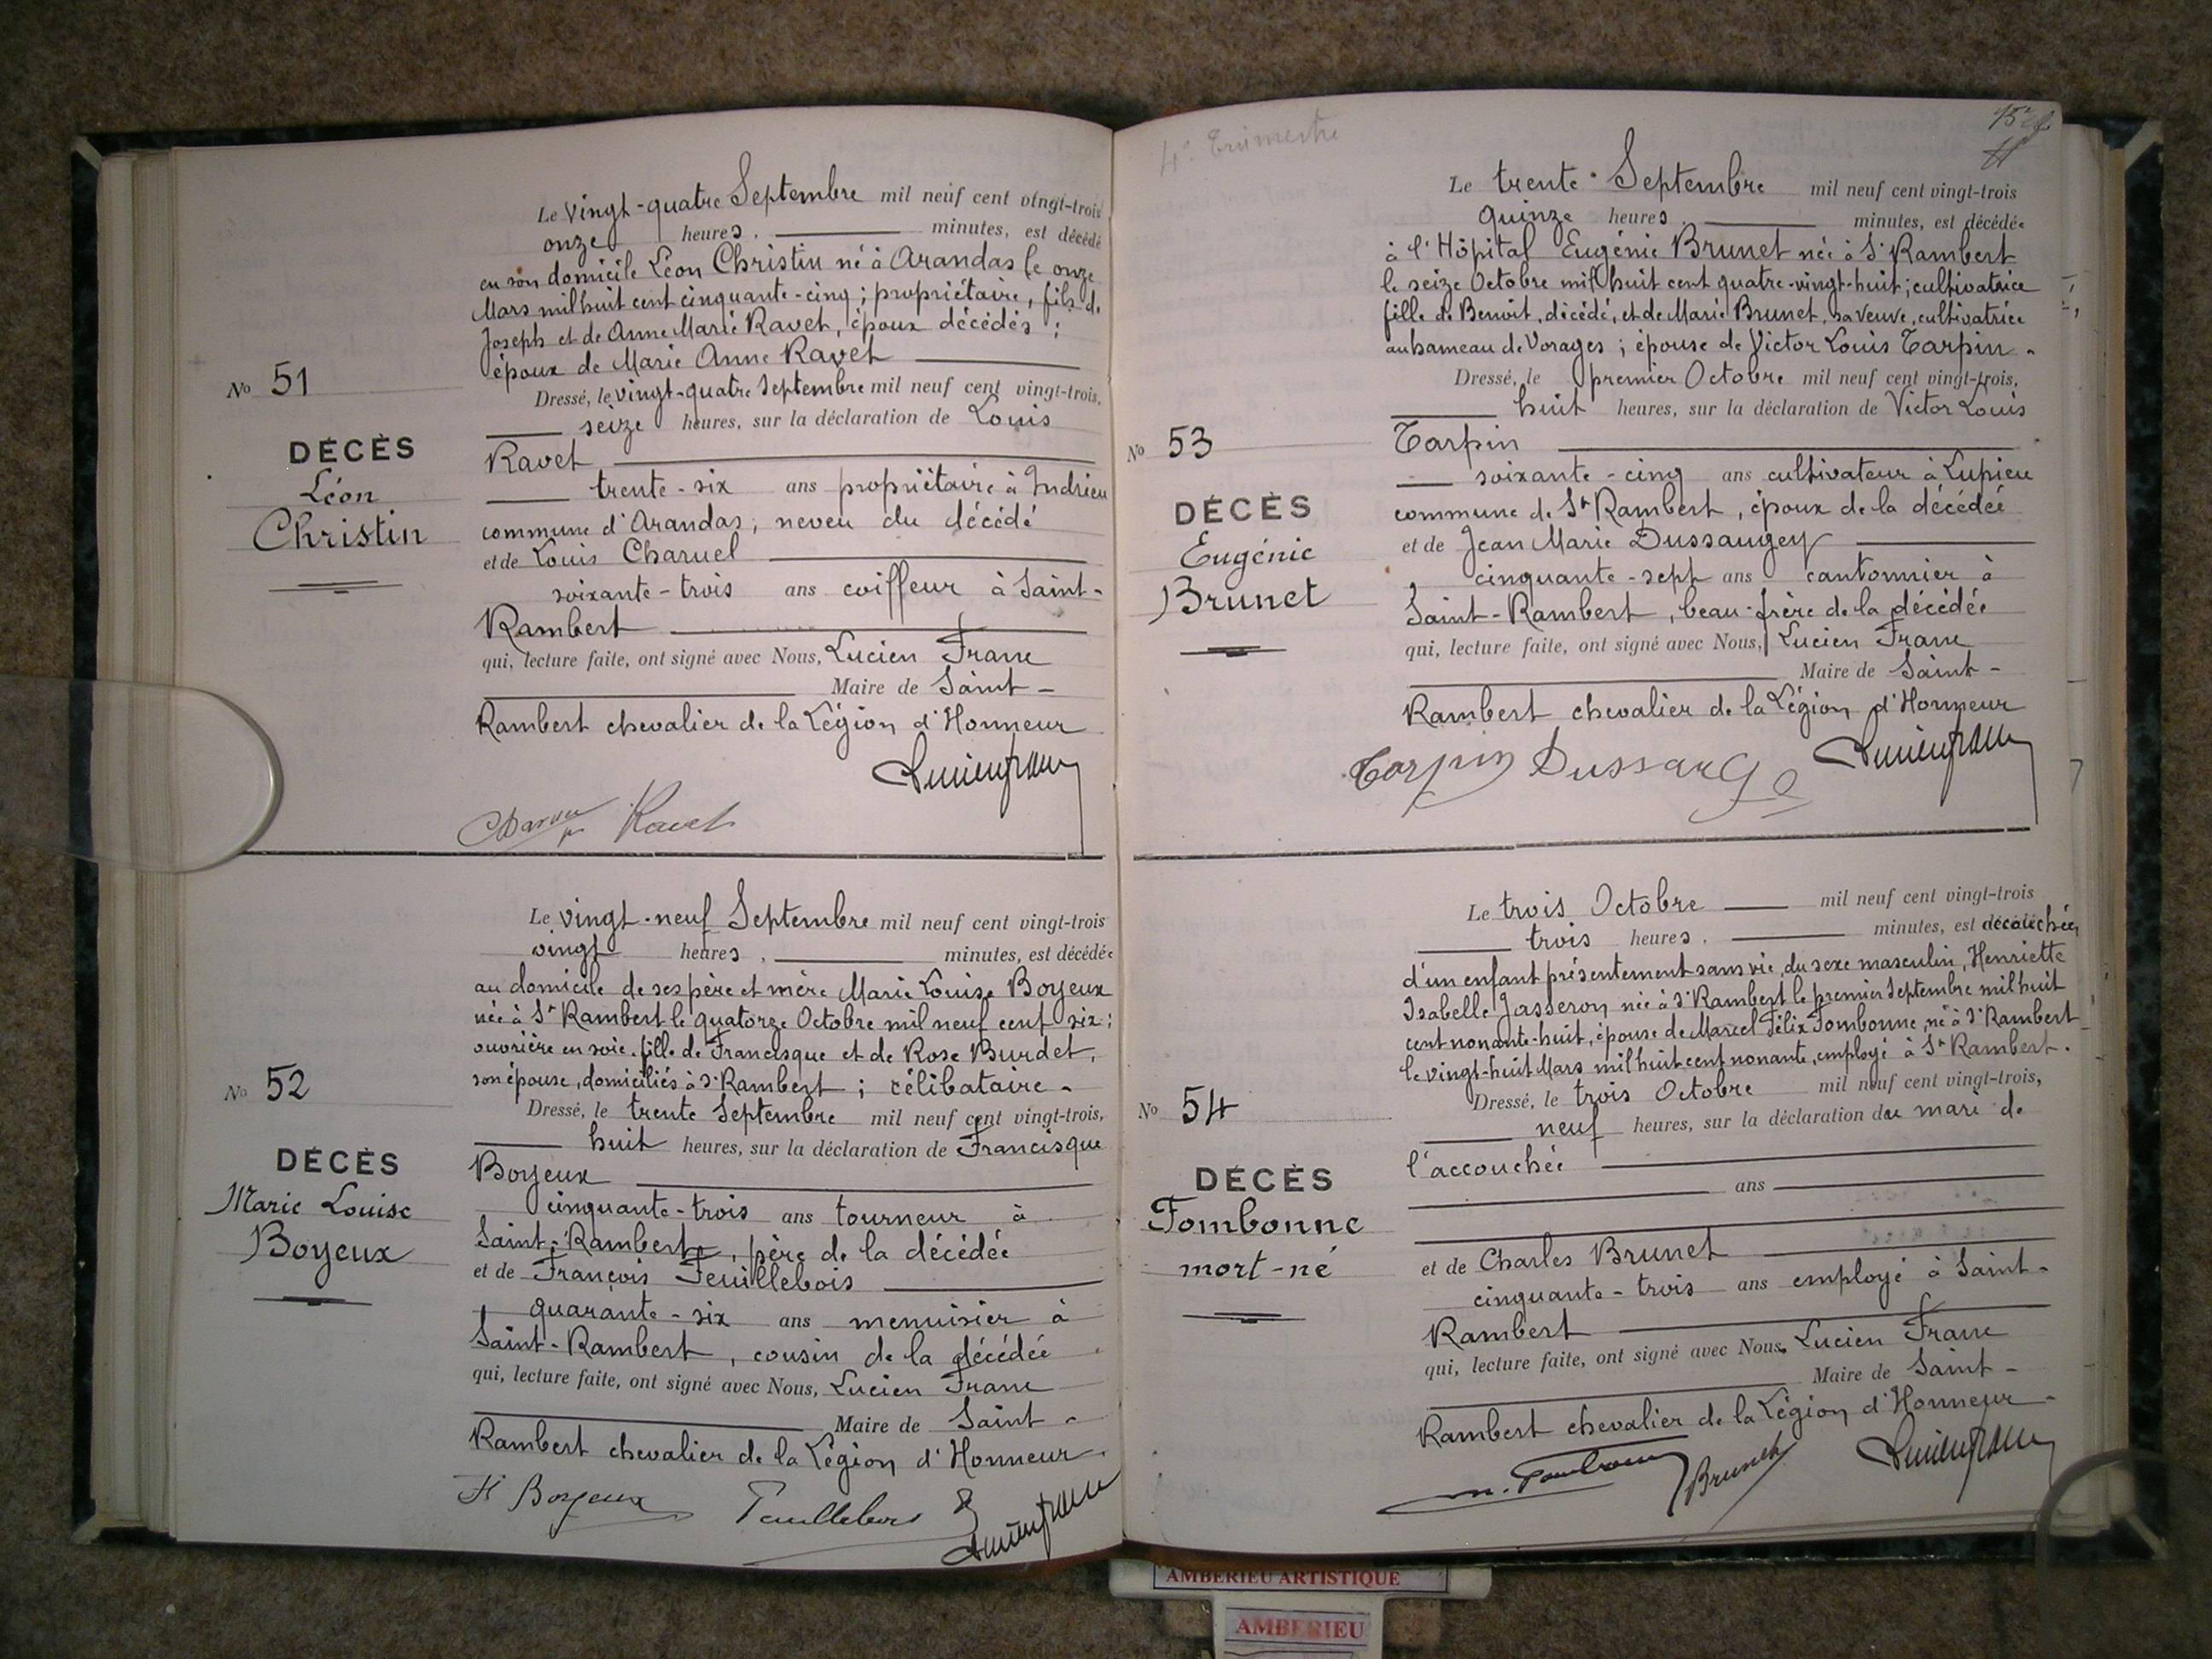 No 51
DÉCÈS
Léon
Christin
Le vingt-quatre Septembre mil neuf cent vingt-trois
onze heures, minutes, est décédé
en son domicile Léon Christin né à Arandas le onze
Mars mil huit cent cinquante-cinq; propriétaire, fils de
Joseph et de Anne Marie Ravet, époux décédés;
époux de Marie Anne Ravet
Dressé, le vingt-quatre Septembre mil neuf cent vingt-trois,
seize heures, sur la déclaration de Louis
Ravet
trente-six ans propriétaire à Indrieu
commune d'Arandas, neveu du décédé
et de Louis Charuel
soixante-trois ans coiffeur à Saint-
Rambert
qui, lecture faite, ont signé avec Nous, Lucien Franc
Maire de Saint-
Rambert chevalier de la Légion d'Honneur
Ravet
No 52
DÉCÈS
Marie Louise
Boyeux
Le vingt-neuf Septembre mil neuf cent vingt-trois
vingt heures, minutes, est décédée
au domicile de ses père et mère Marie Louise Boyeux
née à St Rambert le quatorze Octobre mil neuf cent six;
ouvrière en soie, fille de Francisque et de Rose Burdet,
son épouse, domiciliés à St Rambert; célibataire -
Dressé, le trente Septembre mil neuf cent vingt-trois,
huit heures, sur la déclaration de Francisque
Boyeux
cinquante-trois ans tourneur à
Saint-Rambert, père de la décédée
et de François Feuillebois
quarante-six ans menuisier à
Saint-Rambert, cousin de la décédée
qui, lecture faite, ont signé avec Nous, Lucien Franc
Maire de Saint-
Rambert chevalier de la Légion d'Honneur.
F Boyeux Feuillebois
4e Trimestre
No 53
DÉCÈS
Eugénie
Brunet
Le trente Septembre mil neuf cent vingt-trois
quinze heures, minutes, est décédée
à l'Hôpital Eugénie Brunet née à St Rambert
le seize Octobre mil huit cent quatre-vingt-huit; cultivatrice
fille de Benoit, décédé, et de Marie Brunet, sa veuve, cultivatrice
au hameau de Vorages; épouse de Victor Louis Tarpin -
Dressé, le premier Octobre mil neuf cent vingt-trois,
huit heures, sur la déclaration de Victor Louis
Tarpin
soixante-cinq ans cultivateur à Lupieu
commune de St Rambert, époux de la décédée
et de Jean Marie Dussaugey
cinquante-sept ans cantonnier à
Saint-Rambert, beau-frère de la décédée
qui, lecture faite, ont signé avec Nous, Lucien Franc
Maire de Saint-
Rambert chevalier de la Légion d'Honneur
Tarpin
No 54
DÉCÈS
Tombonne
mort-né
Le trois Octobre mil neuf cent vingt-trois
trois heures, minutes, est accouchée,
d'un enfant présentement sans vie, du sexe masculin, Henriette
Isabelle Jasseron née à St Rambert le premier Septembre mil huit
cent nonante-huit, épouse de Marcel Félix Tombonne, né à St Rambert
le vingt-huit Mars mil huit cent nonante, employé à St Rambert.
Dressé, le trois Octobre mil neuf cent vingt-trois,
neuf heures, sur la déclaration du mari de
l'accouchée
ans
et de Charles Brunet
cinquante-trois ans employé à Saint-
Rambert
qui, lecture faite, ont signé avec Nous, Lucien Franc
Maire de Saint-
Rambert chevalier de la Légion d'Honneur -
Brunet
AMBERIEU ARTISTIQUE
AMBERIEU